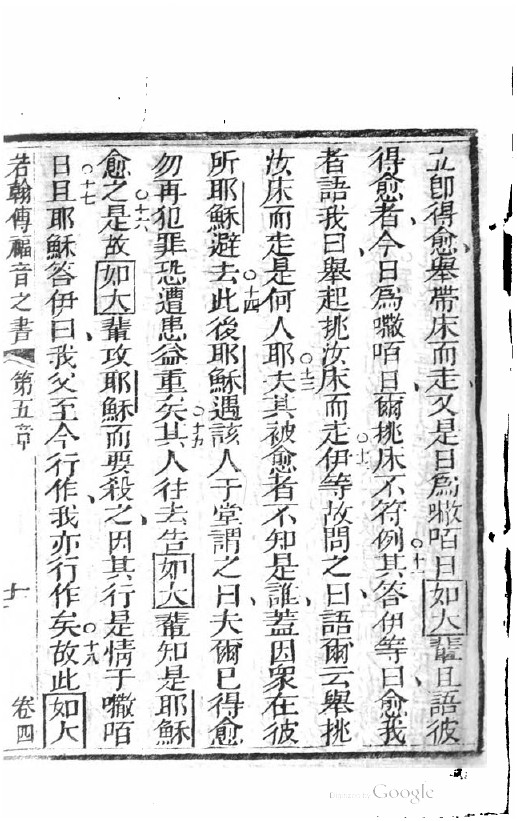 立即得愈舉帶床而走又是日為咟日如大輩且語彼
得愈者今日為咟日爾挑床不符例○十一其答伊等曰愈我
者語我曰舉起挑汝床而走○十二伊等故問之曰語爾云舉挑
汝床而走是何人耶○十三夫其被愈者不知是誰蓋因眾在彼
所耶穌避去○十四此後耶穌遇該人于堂謂之曰夫爾已得愈
勿再犯罪恐遭患益重矣○十五其人往去告如大輩知是耶穌
愈之○十六是故如大輩攻耶穌而要殺之因其行是情于咟
日○十七且耶穌答伊曰我父至今行作我亦行作矣○十八故此如大
若翰傳福音之書 第五章 十一 卷四
Digitized by Google